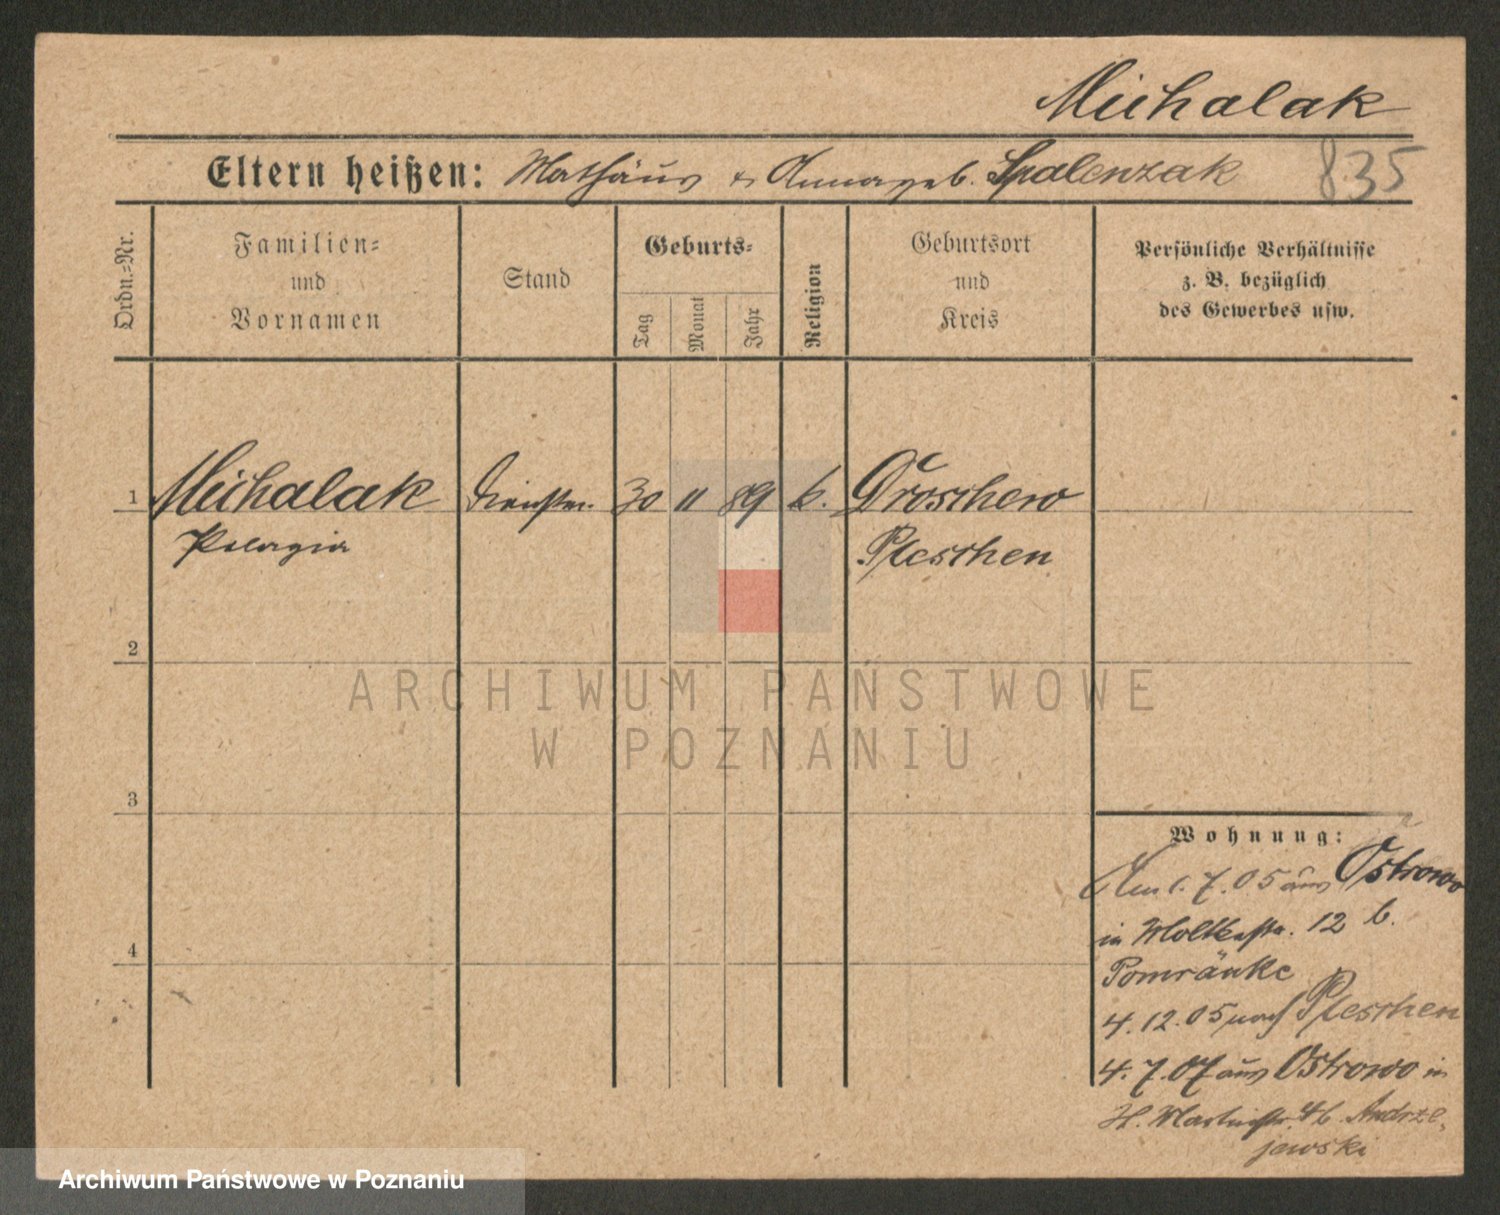 Michalak
Eltern heißen: Mathäus & Anna geb. Spalenzak 835
Ordn.=Nr.
Familien=
und
Vornamen
Stand
Geburts=
Tag
Monat
Jahr
Religion
Geburtsort
und
Kreis
Persönliche Verhältnisse
z. B. bezüglich
des Gewerbes usw.
1 Michalak Dienstm. 30 11 89 k. Droschew
Pelagia Pleschen
2
ARCHIWUM PAŃSTWOWE
W POZNANIU
3
Wohnung:
Am 1. 7. 05 aus Ostrowo
in Moltkestr. 12 b.
Pomränke
4
4. 12. 05 nach Pleschen
4. 7. 07 aus Ostrowo in
H. Martinstr. 4 b. Andrze-
jewski
Archiwum Państwowe w Poznaniu